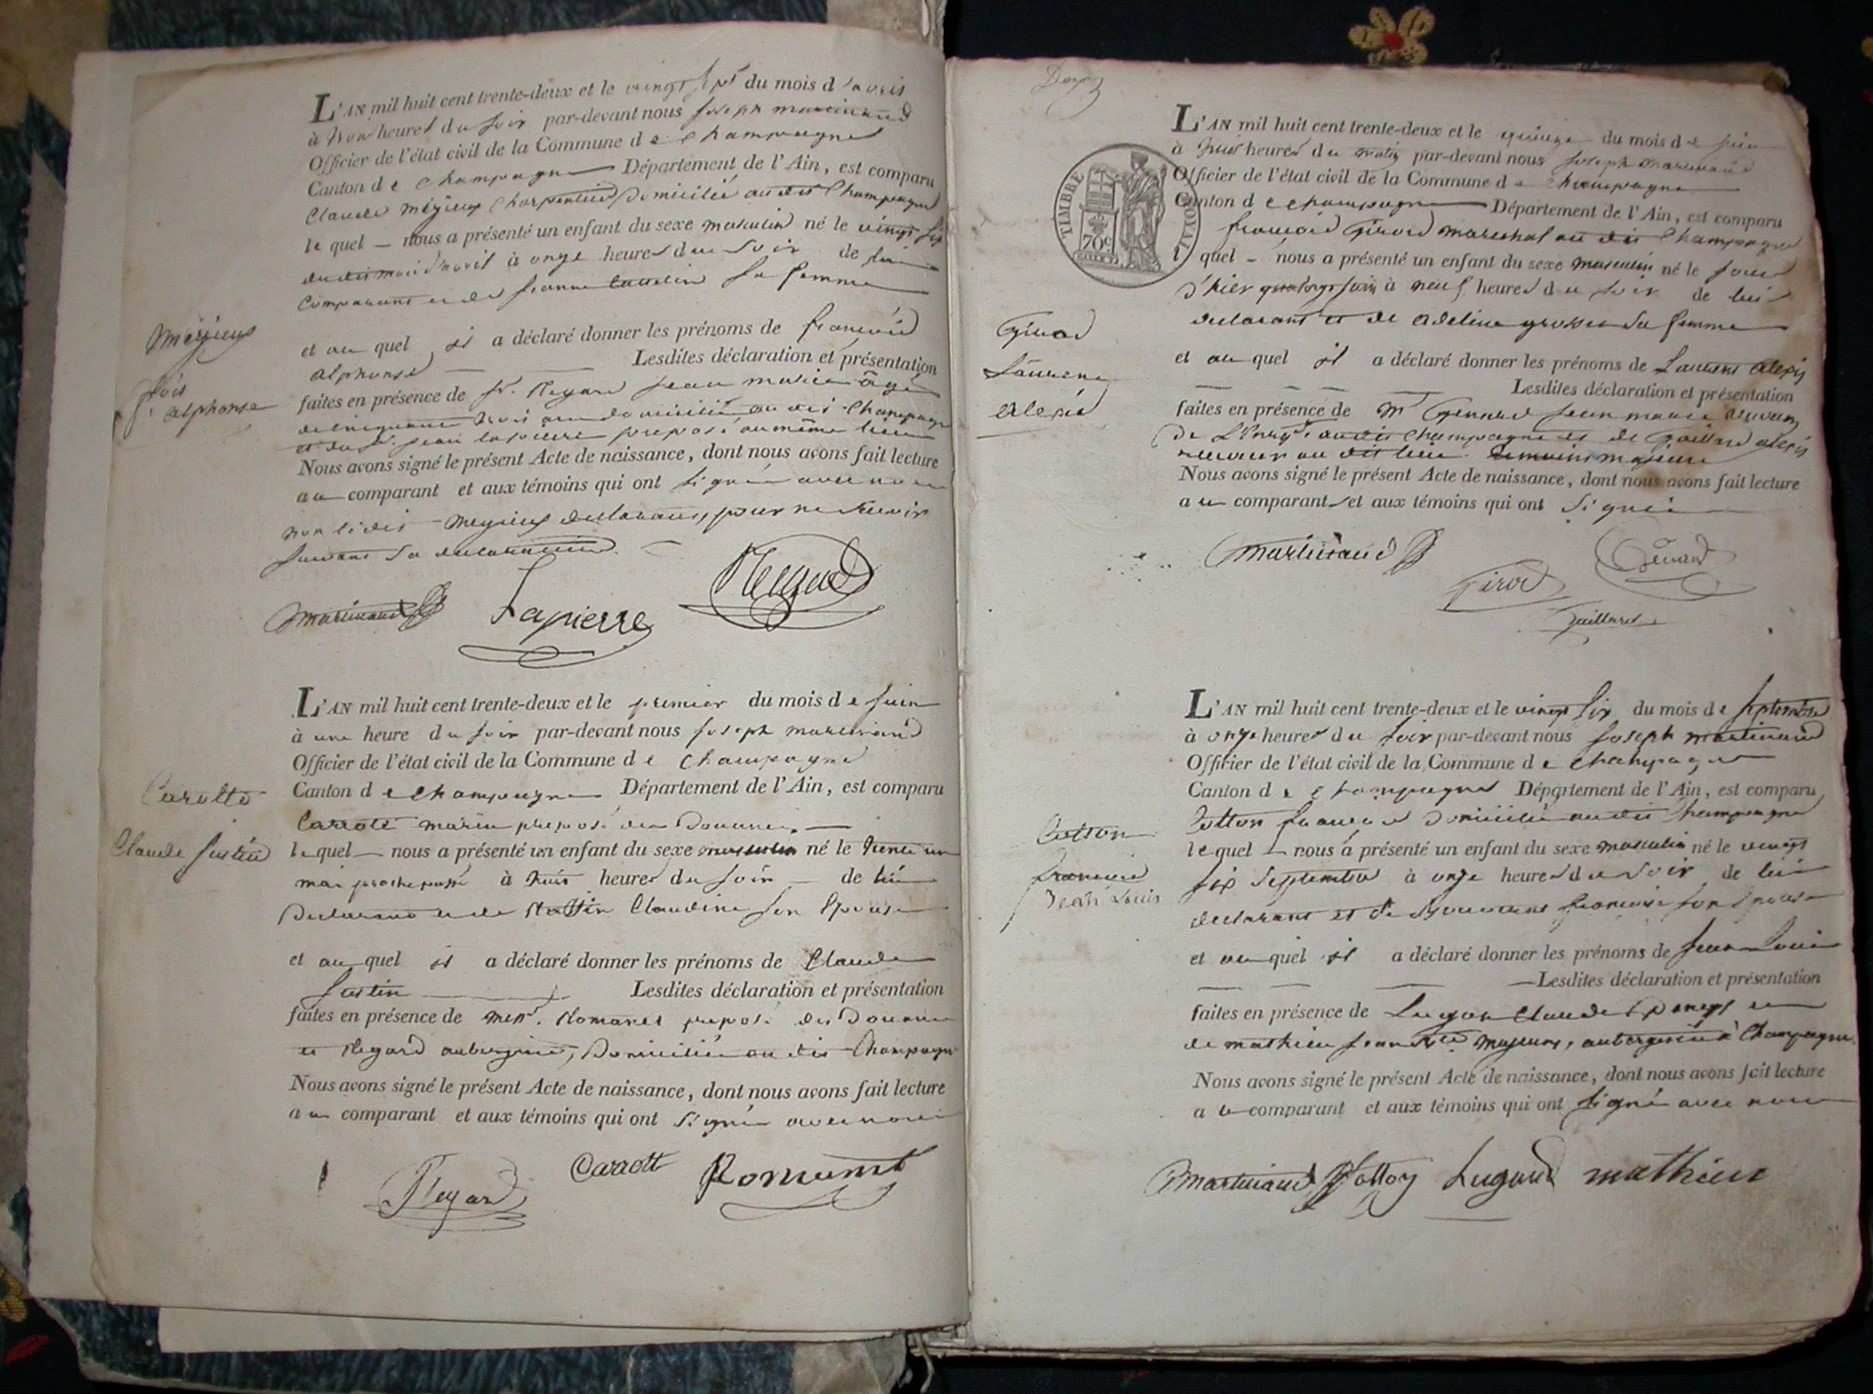 L'AN mil huit cent trente-deux et le vingt sept du mois d'avril
à trois heures du soir par-devant nous joseph martinand
Officier de l'état civil de la Commune de Champagne
Canton de Champagne Département de l'Ain, est comparu
Claude Méyieux Charpentier Domicilié au dit Champagne
lequel nous a présenté un enfant du sexe masculin né le vingt six
du dit mois d'avril à onze heures du soir de lui
comparant et de jeanne sa femme
Méyieux
fois
alphonse
et au quel il a déclaré donner les prénoms de françois
alphonse Lesdites déclaration et présentation
faites en présence de Sr. Reyard jean marie âgé
de cinquante trois ans domicilié au dit Champagne
et du Sr. jean preposé au même lieu
Nous avons signé le présent Acte de naissance, dont nous avons fait lecture
au comparant et aux témoins qui ont signé avec nous
non ledit Meyieux declarant, pour ne savoir
suivant sa declaration.
Martinand Lapierre Reyard
L'AN mil huit cent trente-deux et le premier du mois de juin
à une heure du soir par-devant nous joseph martinand
Officier de l'état civil de la Commune de Champagne
Canton de Champagne Département de l'Ain, est comparu
Carotte
Carotte marie preposé des Douanes
Claude Justin
lequel nous a présenté un enfant du sexe masculin né le trente un
mai proche passé à huit heures du soir de lui
Declarant et de Claudine son Epouse
et au quel il a déclaré donner les prénoms de Claude
Justin Lesdites déclaration et présentation
faites en présence de Romanet preposé des Douanes
et Reyard aubergiste, Domiciliés au dit Champagne
Nous avons signé le présent Acte de naissance, dont nous avons fait lecture
au comparant et aux témoins qui ont signé avec nous
Reyard Carrott Romanet
TIMBRE ROYAL
70c
L'AN mil huit cent trente-deux et le quinze du mois de juin
à huit heures du matin par-devant nous joseph martinand
Officier de l'état civil de la Commune de Champagne
Canton de Champagne Département de l'Ain, est comparu
françois Girod marechal au dit Champagne
lequel nous a présenté un enfant du sexe masculin né le jour
d'hier quatorze juin à neuf heures du soir de lui
declarant et de adeline sa femme
Girod
Laurent
alexis
et au quel il a déclaré donner les prénoms de Laurent alexis
Lesdites déclaration et présentation
faites en présence de Mr Genard jean marie
de L'Enregt. au dit Champagne et de Gaillard alexis
receveur au dit lieu. temoins majeurs
Nous avons signé le présent Acte de naissance, dont nous avons fait lecture
au comparant et aux témoins qui ont signé
Martinand Girod Genard
Gaillard
L'AN mil huit cent trente-deux et le vingt six du mois de septembre
à onze heures du soir par-devant nous joseph martinand
Officier de l'état civil de la Commune de Champagne
Canton de Champagne Département de l'Ain, est comparu
Cotton françois Domicilié au dit Champagne
Cotton
françois
jean Louis
lequel nous a présenté un enfant du sexe masculin né le vingt
six Septembre à onze heures du soir de lui
declarant et de françoise son Epouse
et au quel il a déclaré donner les prénoms de jean Louis
Lesdites déclaration et présentation
faites en présence de Claude et
de mathieu jean majeurs, aubergiste à Champagne.
Nous avons signé le présent Acte de naissance, dont nous avons fait lecture
au comparant et aux témoins qui ont signé avec nous
Martinand Cotton Lugand mathieu